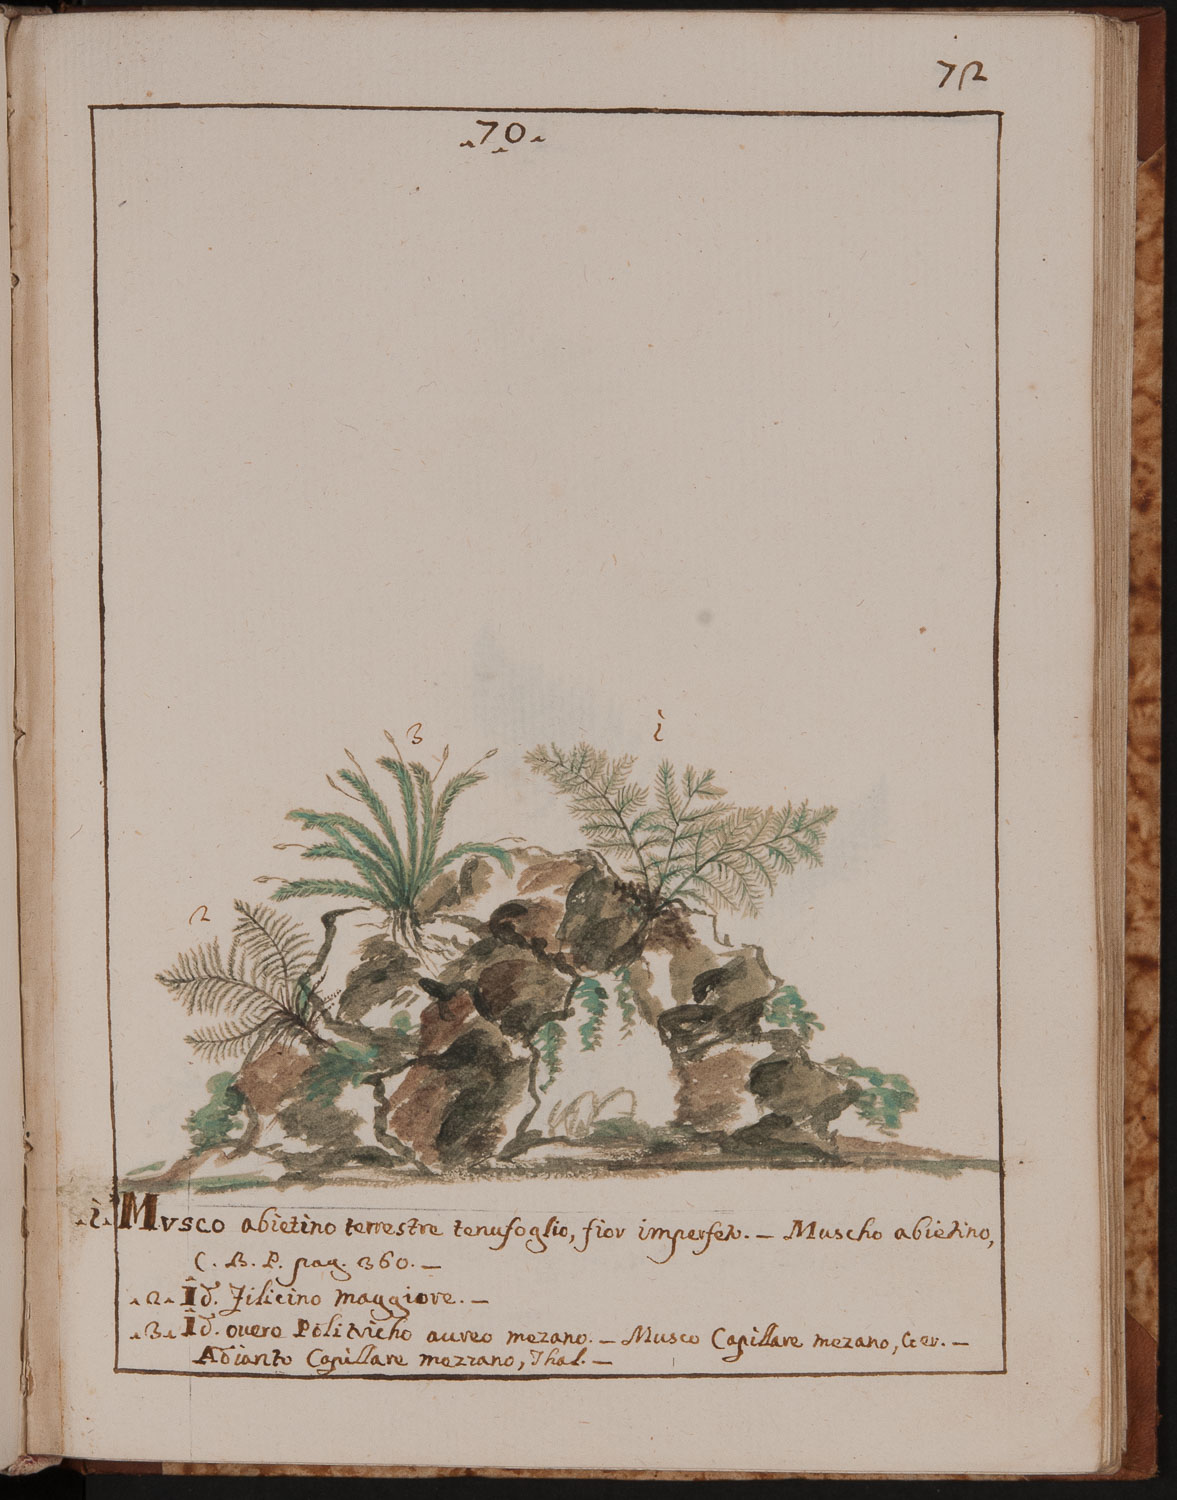 72
.70.
3
1
2
.1. Mvsco abietino terrestre tenufoglio, fior imperfeto. – Muscho abietino,
C. B. P. pag. 360. –
.2. Id. Filicino maggiore. –
.3. Id. overo Politricho aureo mezano. – Musco Capillare mezano, Ger. –
Adianto Capillare mezzano, Thal. –